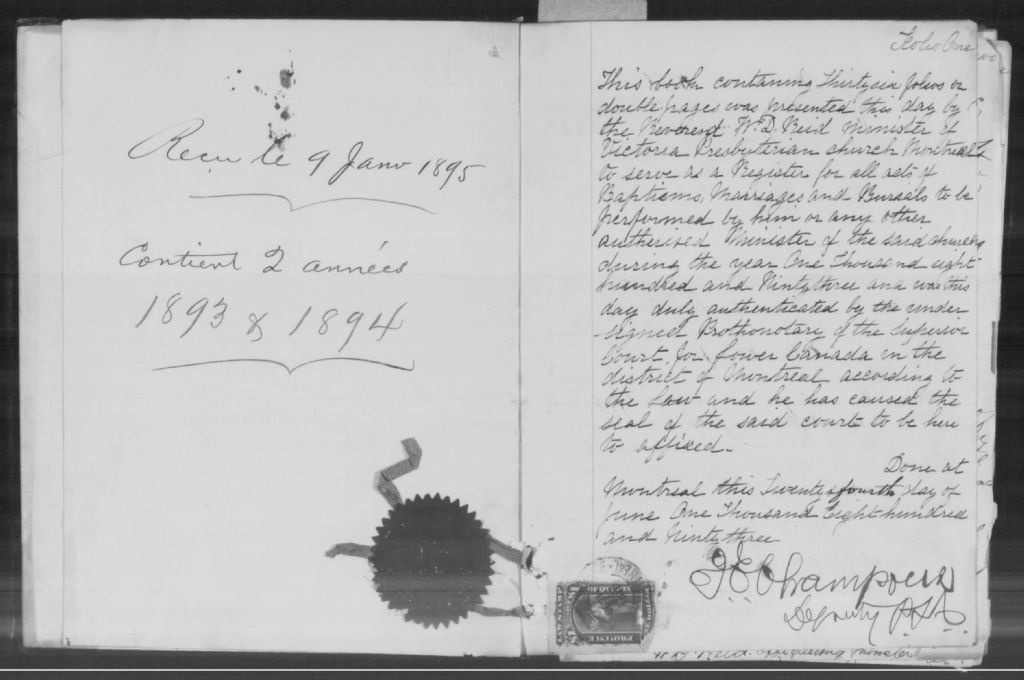 Recu le 9 Janv 1895
Contient 2 années
1893 & 1894
Folio One
This book containing Thirtysix folios or
double pages was presented this day by
the Reverend W. D. Reid Minister of
Victoria Presbyterian church Montreal
to serve as a Register for all acts of
Baptisms, Marriages and Burials to be
performed by him or any other
authorised Minister of the said church
during the year One Thousand eight
hundred and Ninty three and was this
day duly authenticated by the under
-signed Prothonotary of the Superior
Court for Lower Canada in the
district of Montreal according to
the Law and he has caused the
seal of the said court to be here
to affixed.
Done at
Montreal this Twenty fourth day of
June One Thousand Eight hundred
and Ninty three
Deputy P.S.C.
PROVINCE
W. D. Reid. Officiating Minister